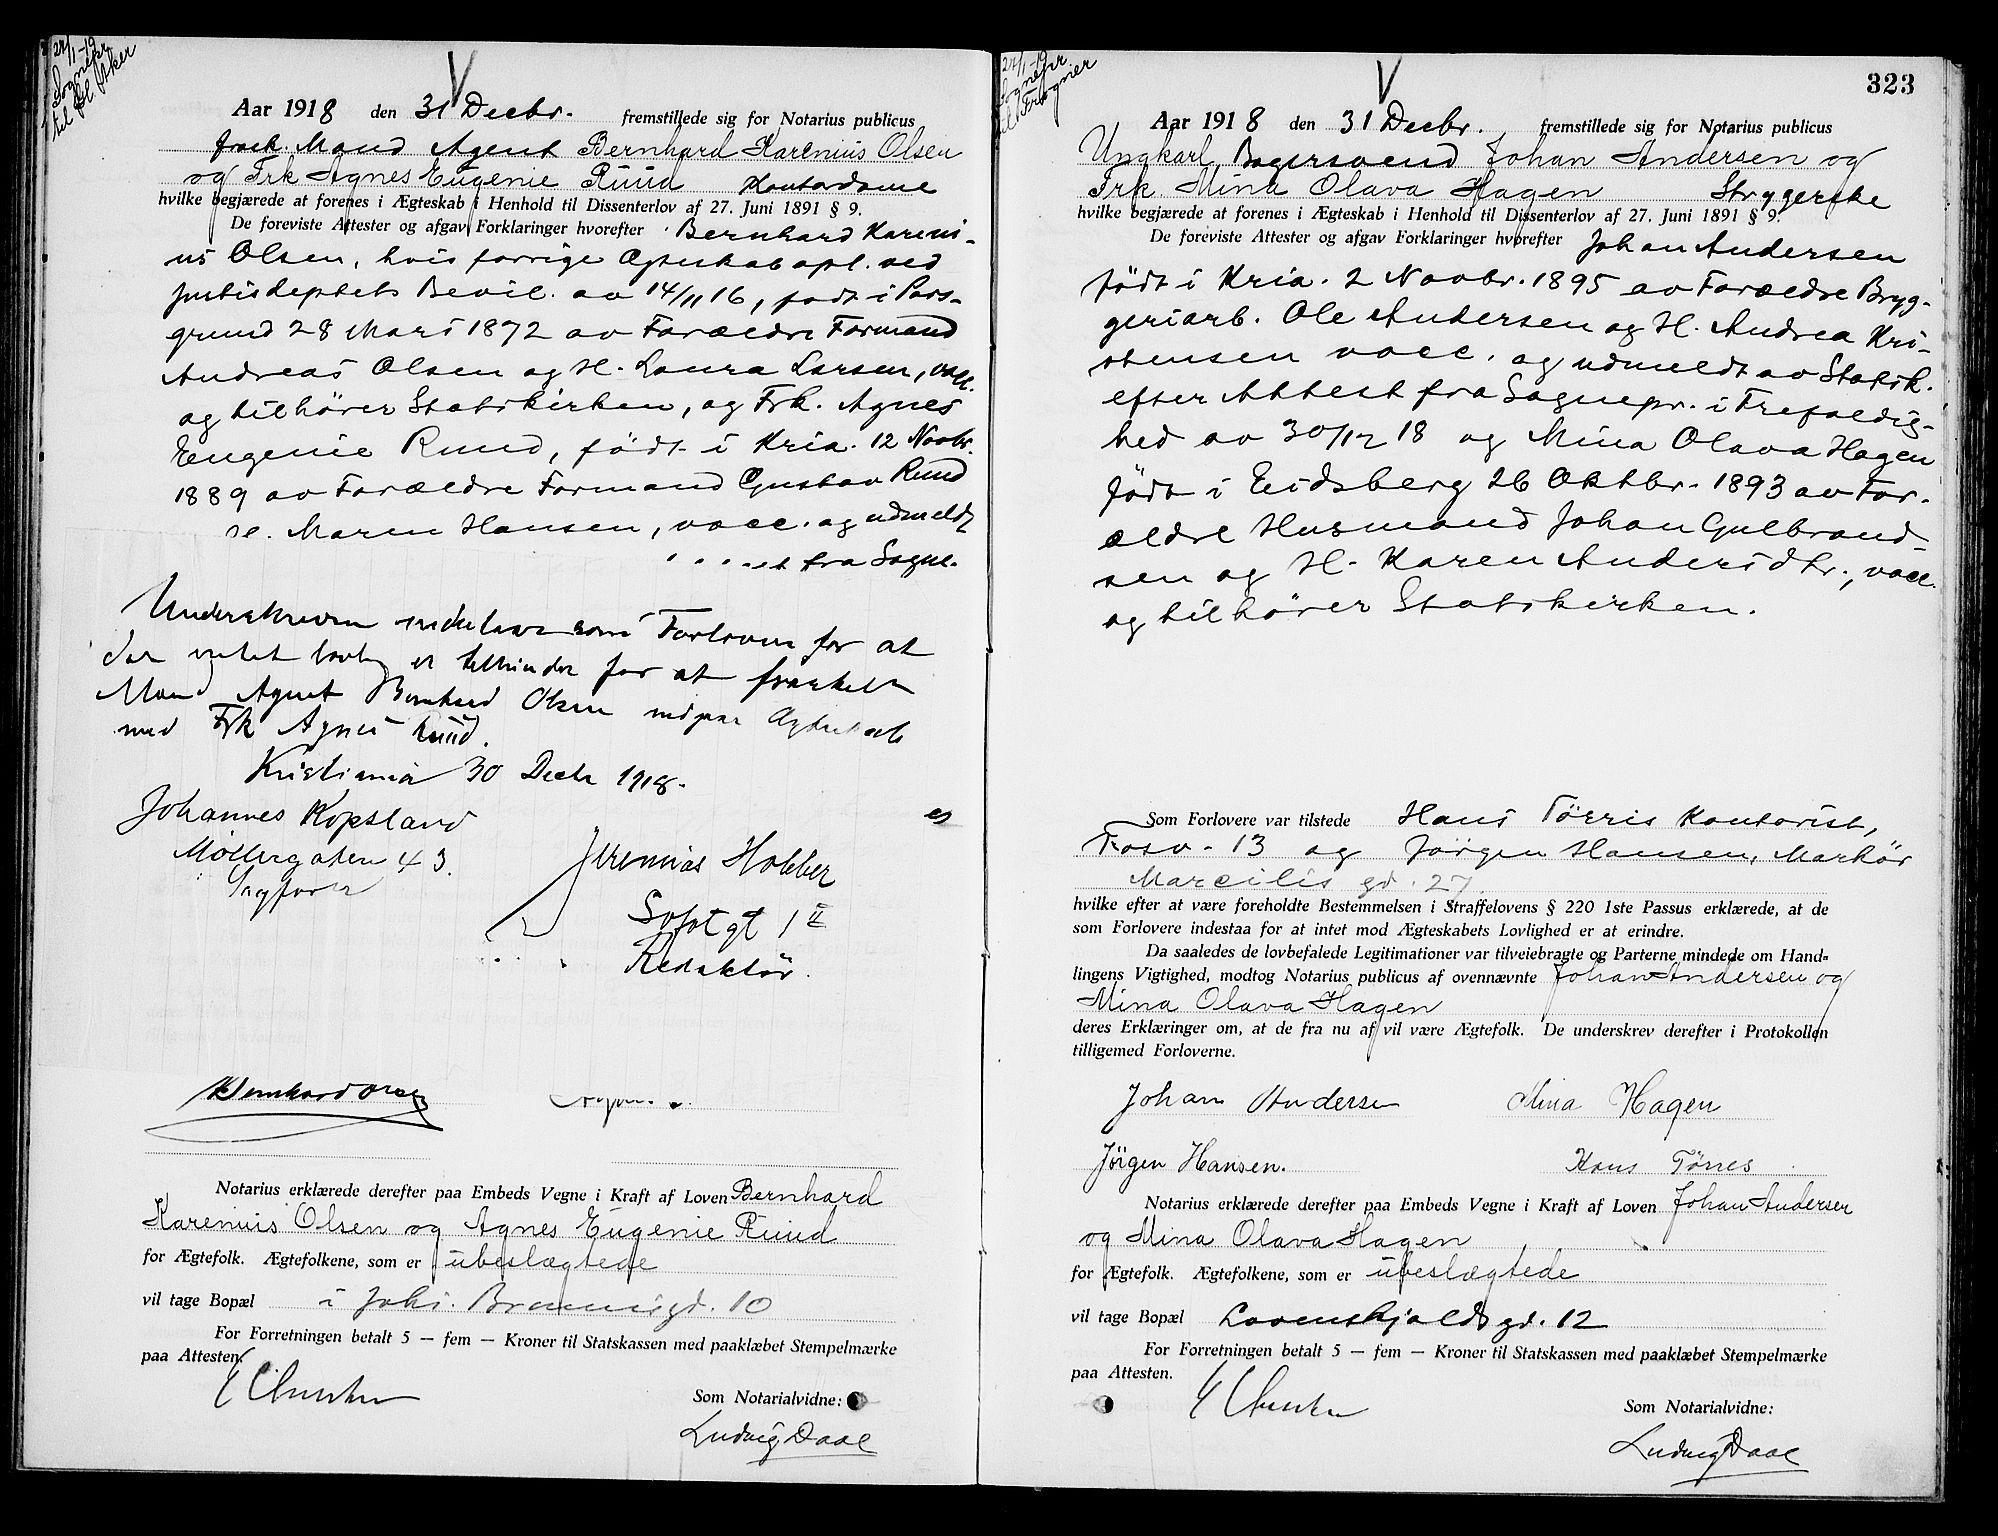 24/1-19
Sognepr
til Gl. Aker
Aar 1918 den 31 Decbr. fremstillede sig for Notarius publicus
frask. Mand Agent Bernhard Karenius Olsen
og Frk Agnes Eugenie Ruud Kontordame
hvilke begjærede at forenes i Ægteskab i Henhold til Dissenterlov af 27. Juni 1891 § 9.
De foreviste Attester og afgav Forklaringer hvorefter Bernhard Kareni-
us Olsen, hvis forrige Ægteskab opl. ved
Justisdeptets Bevil. av 14/11 16, født i Pors-
grund 28 Mars 1872 av Forældre Formand
Andreas Olsen og H. Laura Larsen, vacc.
og tilhører Statskirken, og Frk. Agnes
Eugenie Ruud, født i Kria. 12 Novbr.
1889 av Forældre Formand Gustav Ruud
H. Maren Hansen, vacc. og udmeldt
fra Sogne-
Underskrevne indestaar som Forlover for at
der intet lovlig er tilhinder for at fraskilt
Mand Agent Bernhard Olsen indgaar Ægteskab
med Frk Agnes Ruud.
Kristiania 30 Decbr 1918.
Johannes Kopsland
Møllergaten 43.
Sagfører
Jeremias Hobber
Sofstgt 1 II
Redaktør.
og
Bernhard Olsen
Notarius erklærede derefter paa Embeds Vegne i Kraft af Loven Bernhard
Karenius Olsen og Agnes Eugenie Ruud
for Ægtefolk. Ægtefolkene, som er ubeslægtede
vil tage Bopæl i Johs. Brunsgd. 10
For Forretningen betalt 5 — fem — Kroner til Statskassen med paaklæbet Stempelmærke
paa Attesten.
Som Notarialvidne:
Ludvig Daae
323
24/1-19
Sognepr
til Frogner
Aar 1918 den 31 Decbr. fremstillede sig for Notarius publicus
Ungkarl, Bagersvend Johan Andersen og
Frk. Mina Olava Hagen Strygerske
hvilke begjærede at forenes i Ægteskab i Henhold til Dissenterlov af 27. Juni 1891 § 9.
De foreviste Attester og afgav Forklaringer hvorefter Johan Andersen
født i Kria. 2 Novbr. 1895 av Forældre Bryg-
geriarb. Ole Andersen og H. Andrea Kri-
stensen vacc. og udmeldt av Statsk.
efter Attest fra Sognepr. i Trefoldig-
hed av 30/12 18 og Mina Olava Hagen
født i Eidsberg 26 Oktbr. 1893 av For-
ældre Husmand Johan Gulbrand-
sen og H. Karen Andersdtr., vacc.
og tilhører Statskirken.
Som Forlovere var tilstede Hans Tørris Kontorist,
Fossv. 13 og Jørgen Hansen, Markør
Marcilis gd. 27.
hvilke efter at være foreholdte Bestemmelsen i Straffelovens § 220 1ste Passus erklærede, at de
som Forlovere indestaa for at intet mod Ægteskabets Lovlighed er at erindre.
Da saaledes de lovbefalede Legitimationer var tilveiebragte og Parterne mindede om Hand-
lingens Vigtighed, modtog Notarius publicus af ovennævnte Johan Andersen og
Mina Olava Hagen
deres Erklæringer om, at de fra nu af vil være Ægtefolk. De underskrev derefter i Protokollen
tilligemed Forloverne.
Johan Andersen Mina Hagen
Jørgen Hansen. Hans Tørres
Notarius erklærede derefter paa Embeds Vegne i Kraft af Loven Johan Andersen
og Mina Olava Hagen
for Ægtefolk. Ægtefolkene, som er ubeslægtede
vil tage Bopæl Lovenskjoldsgd. 12
For Forretningen betalt 5 — fem — Kroner til Statskassen med paaklæbet Stempelmærke
paa Attesten.
Som Notarialvidne:
Ludvig Daae